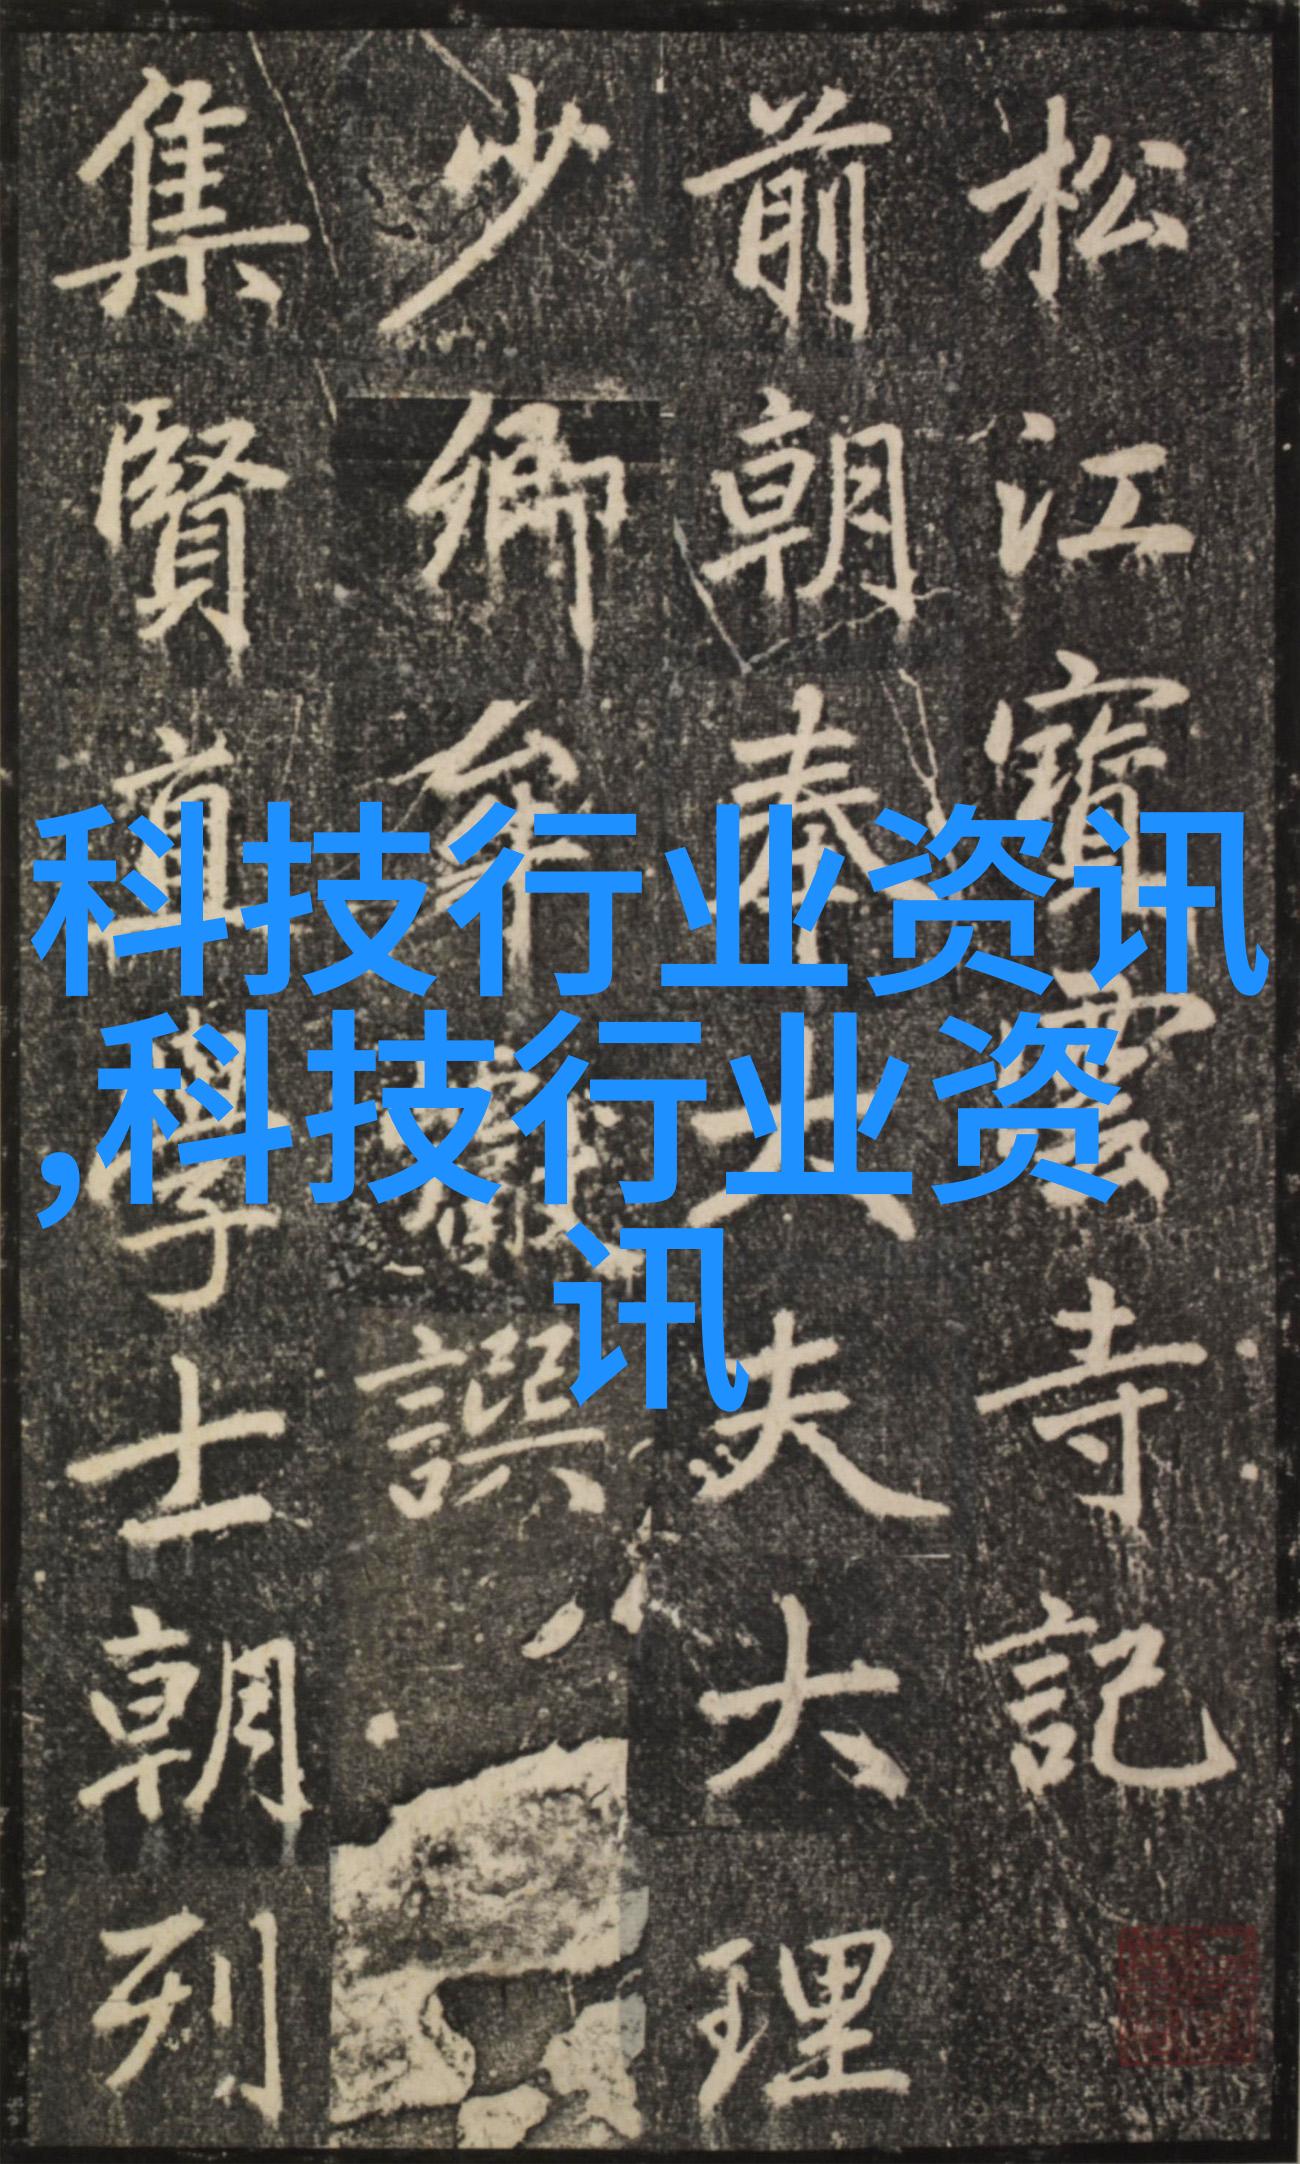 松江寶雲寺記
前朝奉大夫大理
少卿牟巘譔
集賢直學士朝列
科技行业资讯
,科技行业资
讯